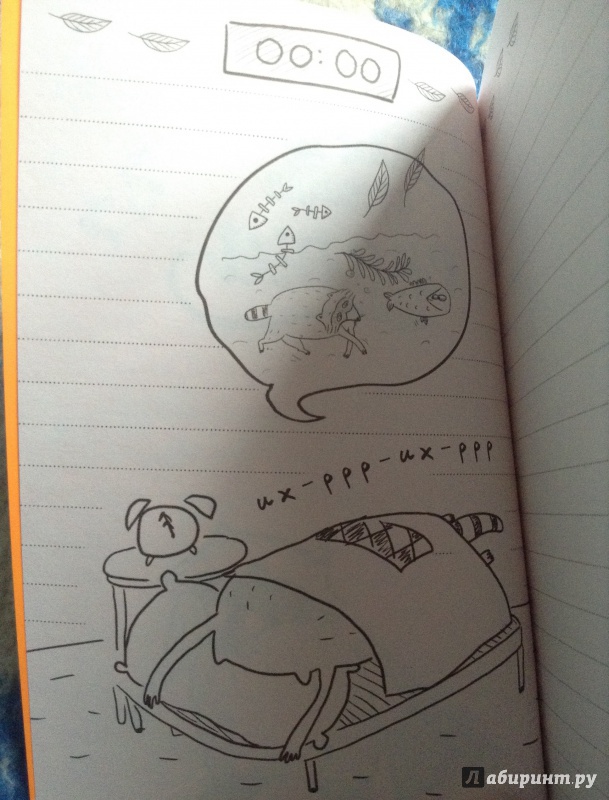 00:00
их-ррр-их-ррр
Лабиринт.ру